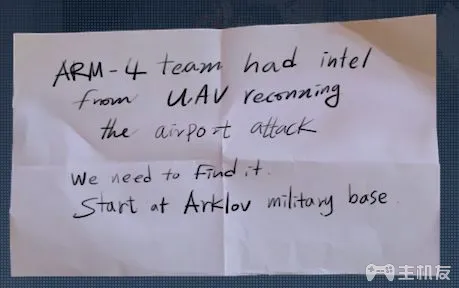 ARM-4 team had intel
from UAV reconning
the airport attack
We need to find it.
Start at Arklov military base
主机友